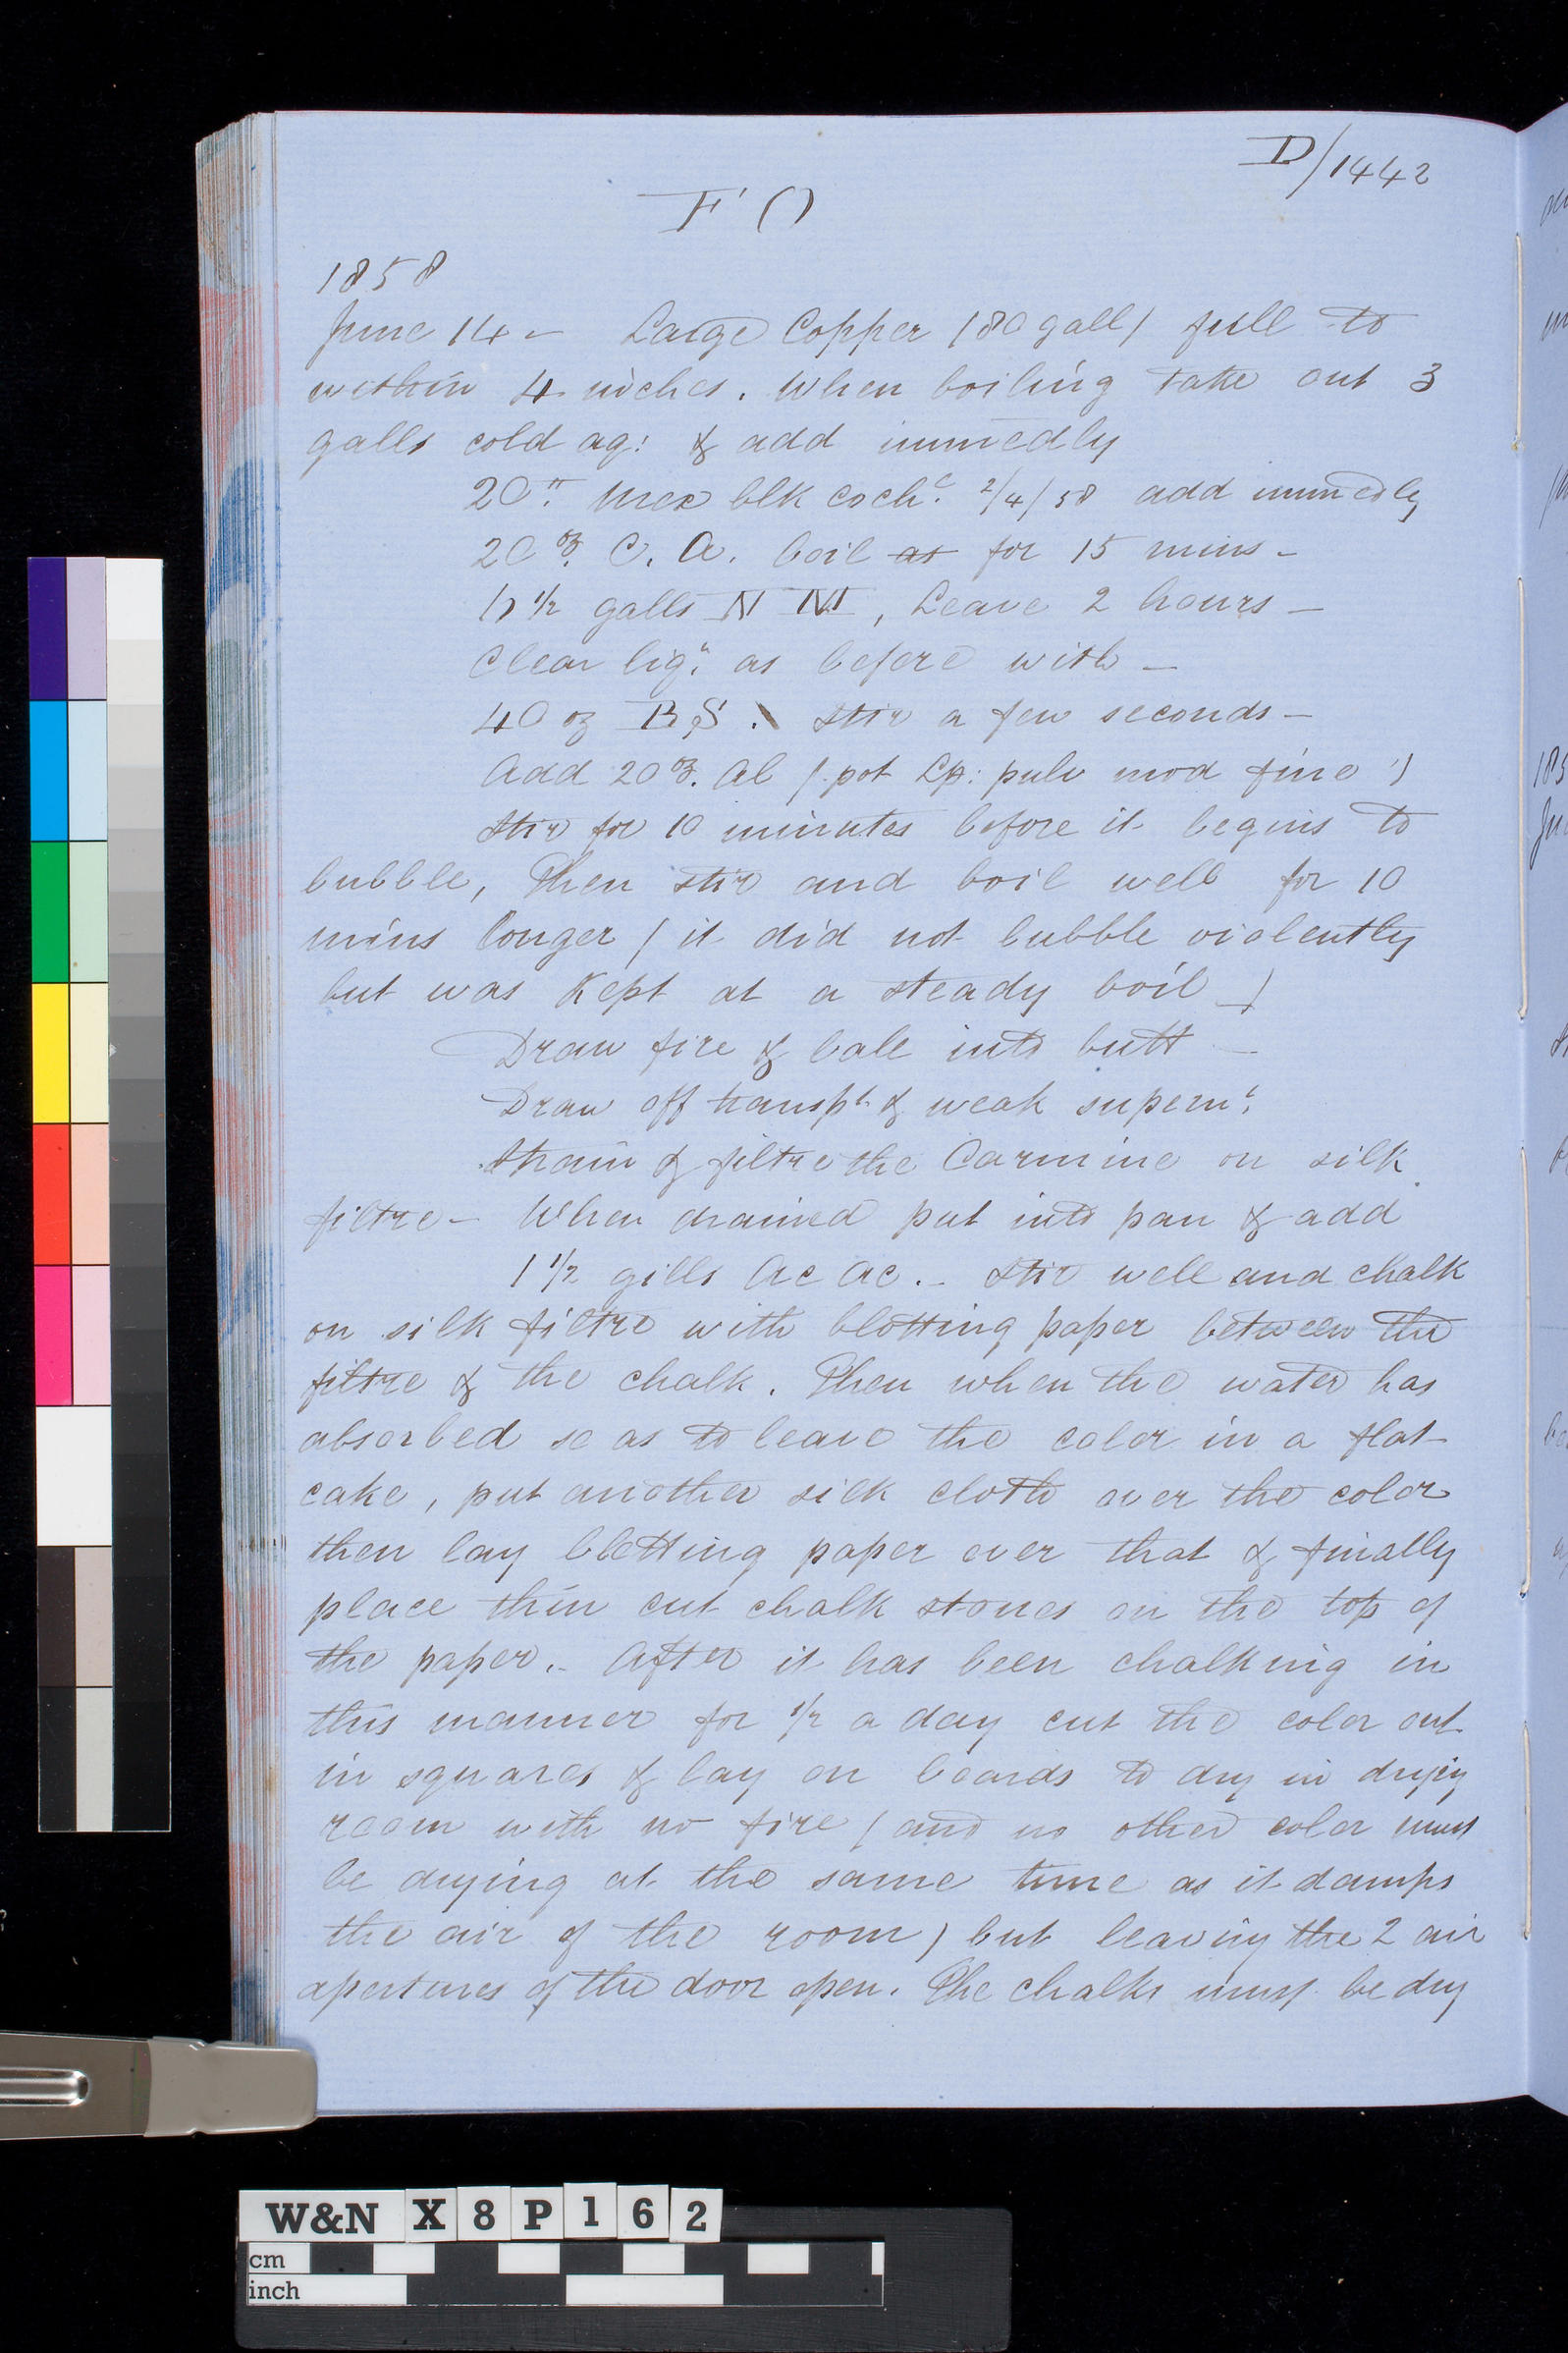 D/1442
F ()
1858
June 14 – Large Copper (80 gall) full to
within 4 inches. When boiling take out 3
galls cold aq: & add immedly
20 lb. Mex blk coch.l 2/4/58 add immedly
20 oz. C. A. boil as for 15 mins –
1/2 galls N M, Leave 2 hours –
Clear liq.r as before with –
40 oz B,S. Stir a few seconds –
Add 20 oz. Al (pot Lp: pulv mod fine)
Stir for 10 minutes before it begins to
bubble, Then stir and boil well for 10
mins longer (it did not bubble violently
but was kept at a steady boil –)
Draw fire & bale into butt –
Draw off transpt. & weak supernt.
Strain & filtre the Carmine on silk
filtre – When drained put into pan & add
1 1/2 gills Ac Ac. – Stir well and chalk
on silk filtre with blotting paper between the
filtre & the chalk. Then when the water has
absorbed so as to leave the color in a flat
cake, put another silk cloth over the color
then lay blotting paper over that & finally
place thin cut chalk stones on the top of
the paper. – After it has been chalking in
this manner for 1/2 a day cut the color out
in squares & lay on boards to dry in drying
room with no fire (and no other color must
be drying at the same time as it damps
the air of the room) but leaving the 2 air
apertures of the door open. The chalks must be dry
W&N X8P162
cm
inch